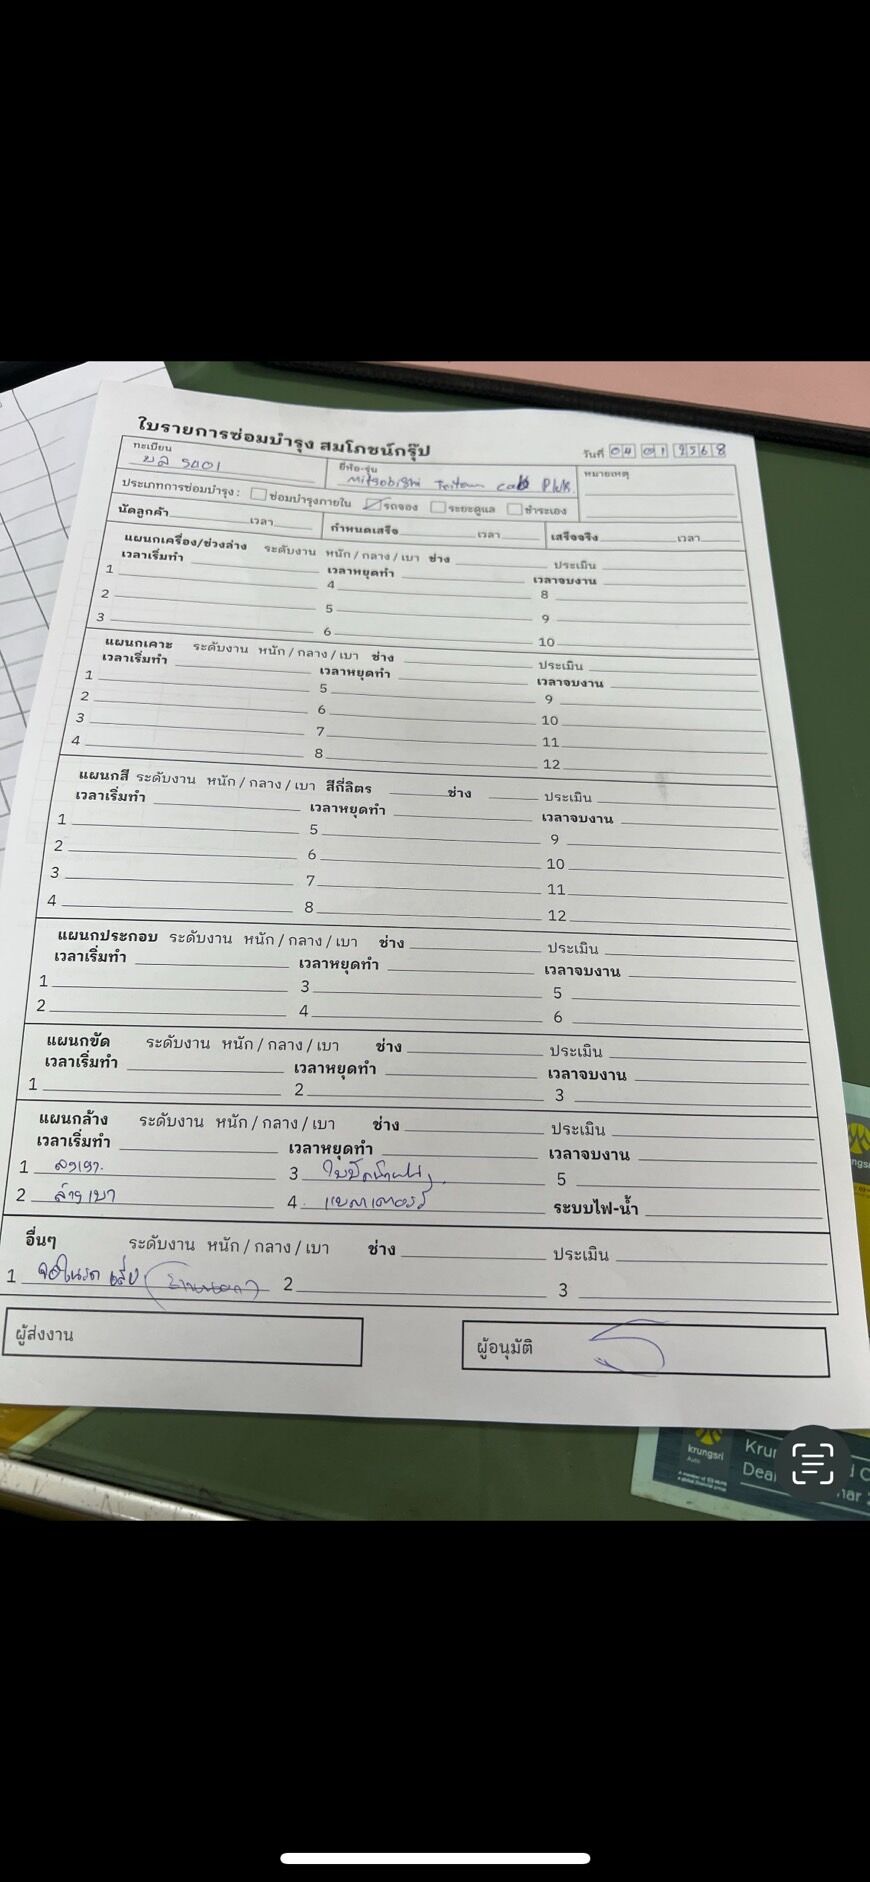 ใบรายการซ่อมบำรุง สมโภชน์กรุ๊ป
วันที่ 04 01 2568
ทะเบียน ยี่ห้อ-รุ่น หมายเหตุ
บล 5001 Mitsobishi Triton cab Plus
ประเภทการซ่อมบำรุง : ซ่อมบำรุงภายใน รถจอง ระยะดูแล ชำระเอง
นัดลูกค้า เวลา กำหนดเสร็จ เวลา เสร็จจริง เวลา
แผนกเครื่อง/ช่วงล่าง ระดับงาน หนัก / กลาง / เบา ช่าง ประเมิน
เวลาเริ่มทำ เวลาหยุดทำ เวลาจบงาน
1 4 8
2 5 9
3 6 10
แผนกเคาะ ระดับงาน หนัก / กลาง / เบา ช่าง ประเมิน
เวลาเริ่มทำ เวลาหยุดทำ เวลาจบงาน
1 5 9
2 6 10
3 7 11
4 8 12
แผนกสี ระดับงาน หนัก / กลาง / เบา สีกี่ลิตร ช่าง ประเมิน
เวลาเริ่มทำ เวลาหยุดทำ เวลาจบงาน
1 5 9
2 6 10
3 7 11
4 8 12
แผนกประกอบ ระดับงาน หนัก / กลาง / เบา ช่าง ประเมิน
เวลาเริ่มทำ เวลาหยุดทำ เวลาจบงาน
1 3 5
2 4 6
แผนกขัด ระดับงาน หนัก / กลาง / เบา ช่าง ประเมิน
เวลาเริ่มทำ เวลาหยุดทำ เวลาจบงาน
1 2 3
แผนกล้าง ระดับงาน หนัก / กลาง / เบา ช่าง ประเมิน
เวลาเริ่มทำ เวลาหยุดทำ เวลาจบงาน
1 3 ใบปัดน้ำฝน 5
2 ล้างเบา 4 แบตเตอรรี่ ระบบไฟ-น้ำ
อื่นๆ ระดับงาน หนัก / กลาง / เบา ช่าง ประเมิน
1 2 3
ผู้ส่งงาน ผู้อนุมัติ
krungsri
Auto